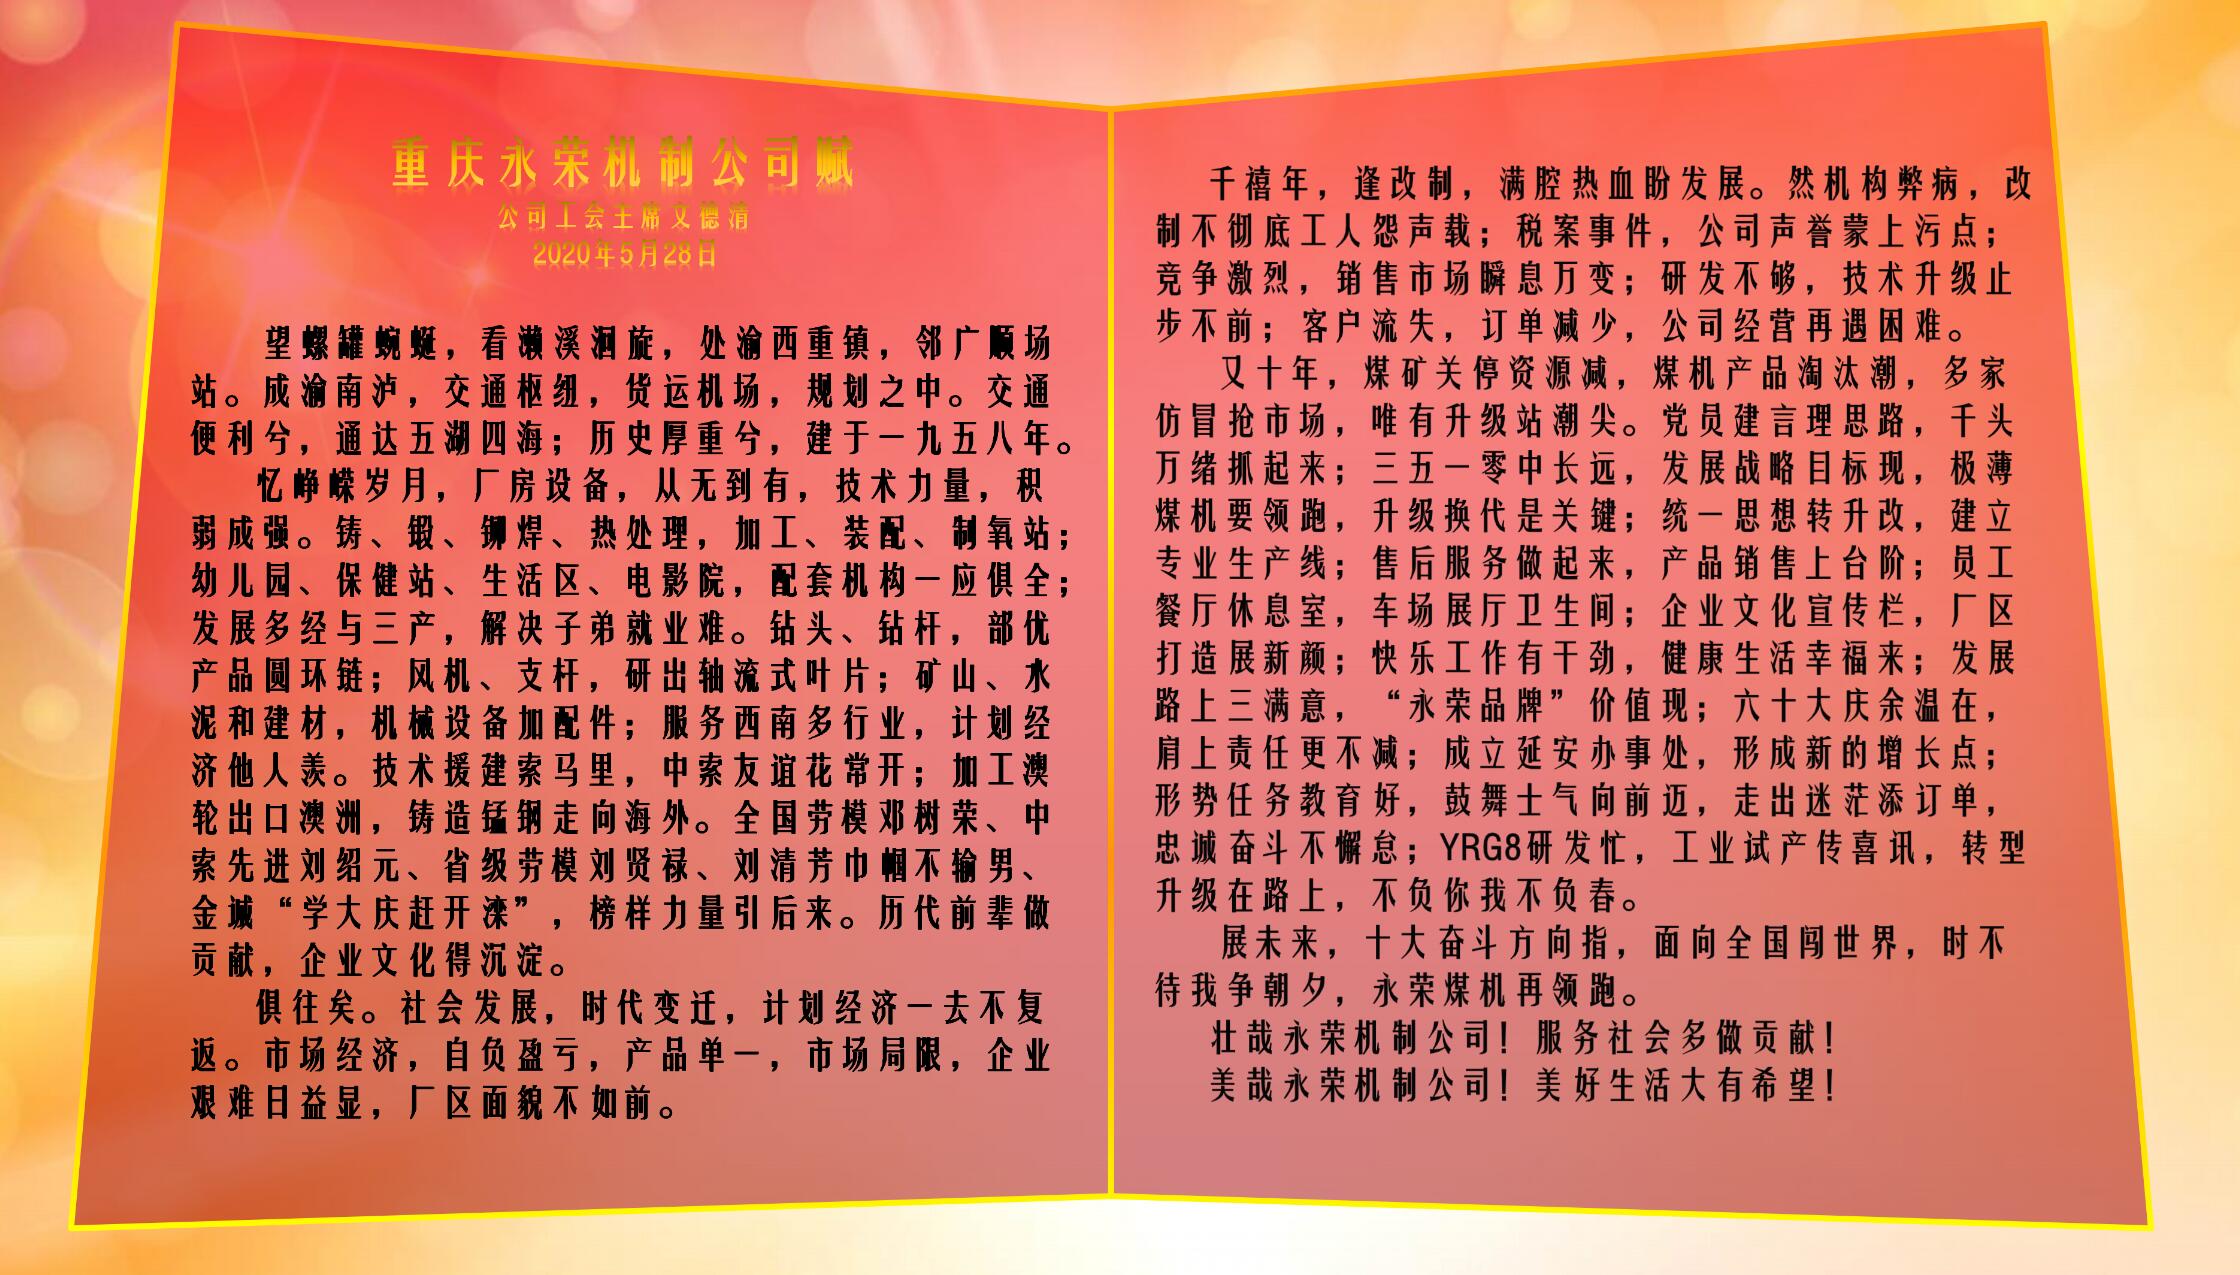 重庆永荣机制公司赋
公司工会主席文德清
2020年5月28日
望螺罐蜿蜒，看濑溪洄旋，处渝西重镇，邻广顺场
站。成渝南泸，交通枢纽，货运机场，规划之中。交通
便利兮，通达五湖四海；历史厚重兮，建于一九五八年。
忆峥嵘岁月，厂房设备，从无到有，技术力量，积
弱成强。铸、锻、铆焊、热处理，加工、装配、制氧站；
幼儿园、保健站、生活区、电影院，配套机构一应俱全；
发展多经与三产，解决子弟就业难。钻头、钻杆，部优
产品圆环链；风机、支杆，研出轴流式叶片；矿山、水
泥和建材，机械设备加配件；服务西南多行业，计划经
济他人羡。技术援建索马里，中索友谊花常开；加工澳
轮出口澳洲，铸造锰钢走向海外。全国劳模邓树荣、中
索先进刘绍元、省级劳模刘贤禄、刘清芳巾帼不输男、
金诚“学大庆赶开滦”，榜样力量引后来。历代前辈做
贡献，企业文化得沉淀。
俱往矣。社会发展，时代变迁，计划经济一去不复
返。市场经济，自负盈亏，产品单一，市场局限，企业
艰难日益显，厂区面貌不如前。
千禧年，逢改制，满腔热血盼发展。然机构弊病，改
制不彻底工人怨声载；税案事件，公司声誉蒙上污点；
竞争激烈，销售市场瞬息万变；研发不够，技术升级止
步不前；客户流失，订单减少，公司经营再遇困难。
又十年，煤矿关停资源减，煤机产品淘汰潮，多家
仿冒抢市场，唯有升级站潮尖。党员建言理思路，千头
万绪抓起来；三五一零中长远，发展战略目标现，极薄
煤机要领跑，升级换代是关键；统一思想转升改，建立
专业生产线；售后服务做起来，产品销售上台阶；员工
餐厅休息室，车场展厅卫生间；企业文化宣传栏，厂区
打造展新颜；快乐工作有干劲，健康生活幸福来；发展
路上三满意，“永荣品牌”价值现；六十大庆余温在，
肩上责任更不减；成立延安办事处，形成新的增长点；
形势任务教育好，鼓舞士气向前迈，走出迷茫添订单，
忠诚奋斗不懈怠；YRG8研发忙，工业试产传喜讯，转型
升级在路上，不负你我不负春。
展未来，十大奋斗方向指，面向全国闯世界，时不
待我争朝夕，永荣煤机再领跑。
壮哉永荣机制公司！服务社会多做贡献！
美哉永荣机制公司！美好生活大有希望！